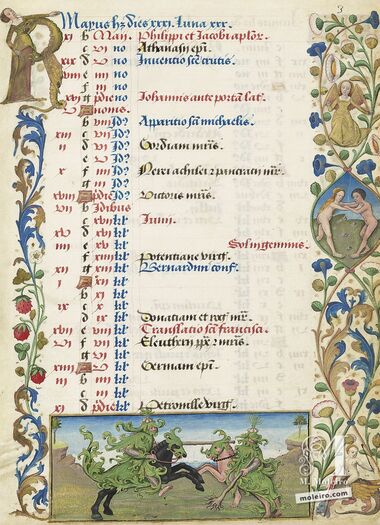 3
Mayus hz dies xxxi. Luna xxx.
xi b Man. Philippi et Jacobi aplor.
c vi no Athanasij epi.
xix d v no Inventio sce crucis.
viii e iiii no
f iii no
xvi g pdie no Johannis ante portā lat.
v A nonis.
h viii Id? Apparitio scī michaelis.
xiii c vii Id?
ii d vi Id? Gordiani mris.
e v Id?
x f iiii Id? Nerei achilei z pancratij mr̄.
g iii Id?
xviii A pdie Id? Victoris mr̄is.
vii b Idibus
c xvii kl Junii.
xv d xvi kl
iiii e xv kl Sol in geminis.
f xiiii kl Potentiane virg.
xii g xiii kl Bernardini conf.
i A xii kl
b xi kl
ix c x kl
d ix kl Donatiani et rog mr̄.
xvii e viii kl Translatio scī francisci.
vi f vii kl Eleutherij pp z mr̄is.
g vi kl
xiiii A v kl Germani epi.
iii b iiii kl
c iii kl
xi d pdie kl Petronille virg.
M. Moleiro
moleiro.com